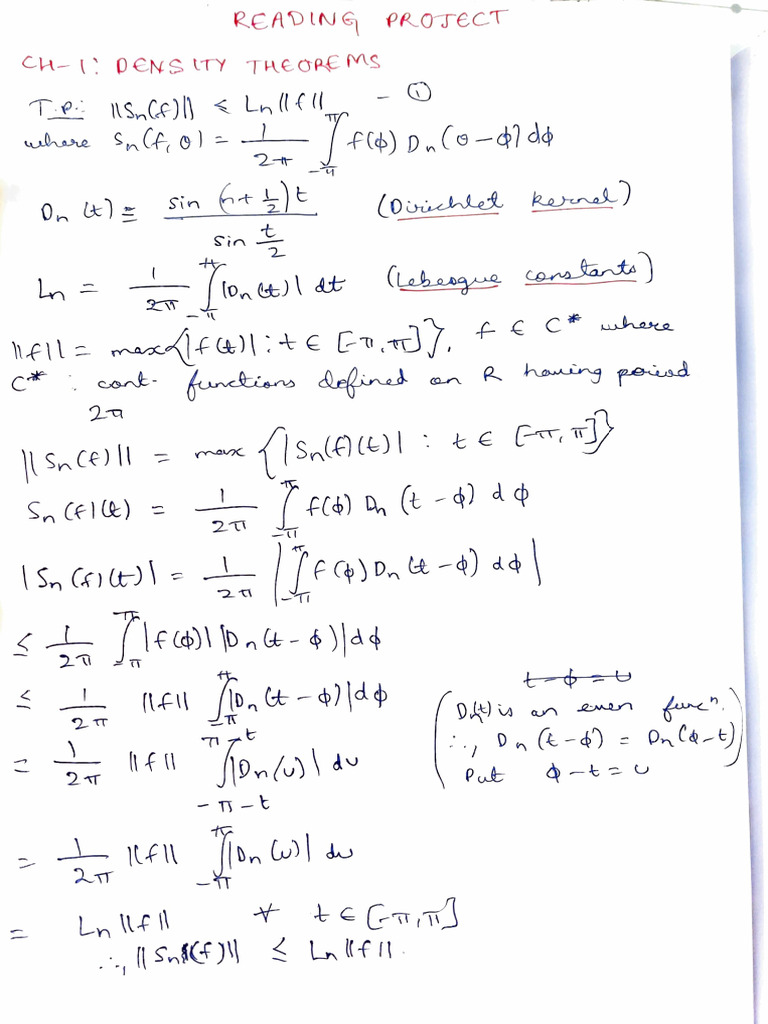 READING PROJECT
CH-1: DENSITY THEOREMS
T.P.: ||Sn(f)|| ≤ Ln||f|| - ①
where Sn(f,θ) = 1/2π ∫_{-π}^{π} f(ϕ) Dn(θ-ϕ) dϕ
Dn(t) = sin(n+1/2)t / sin t/2 (Dirichlet kernel)
Ln = 1/2π ∫_{-π}^{π} |Dn(t)| dt (Lebesgue constants)
||f|| = max{|f(t)| : t ∈ [-π,π]}, f ∈ C* where
C* : cont. functions defined on R having period
2π
||Sn(f)|| = max {|Sn(f)(t)| : t ∈ [-π,π]}
Sn(f)(t) = 1/2π ∫_{-π}^{π} f(ϕ) Dn(t-ϕ) dϕ
|Sn(f)(t)| = 1/2π |∫_{-π}^{π} f(ϕ) Dn(t-ϕ) dϕ|
≤ 1/2π ∫_{-π}^{π} |f(ϕ)| |Dn(t-ϕ)| dϕ
≤ 1/2π ||f|| ∫_{-π}^{π} |Dn(t-ϕ)| dϕ
= 1/2π ||f|| ∫_{-π-t}^{π-t} |Dn(u)| du
t-ϕ=u
(Dn(t) is an even funcⁿ.
∴, Dn(t-ϕ) = Dn(ϕ-t)
Put ϕ-t=u)
= 1/2π ||f|| ∫_{-π}^{π} |Dn(u)| du
= Ln||f|| ∀ t ∈ [-π,π]
∴, ||Sn(f)|| ≤ Ln||f||.